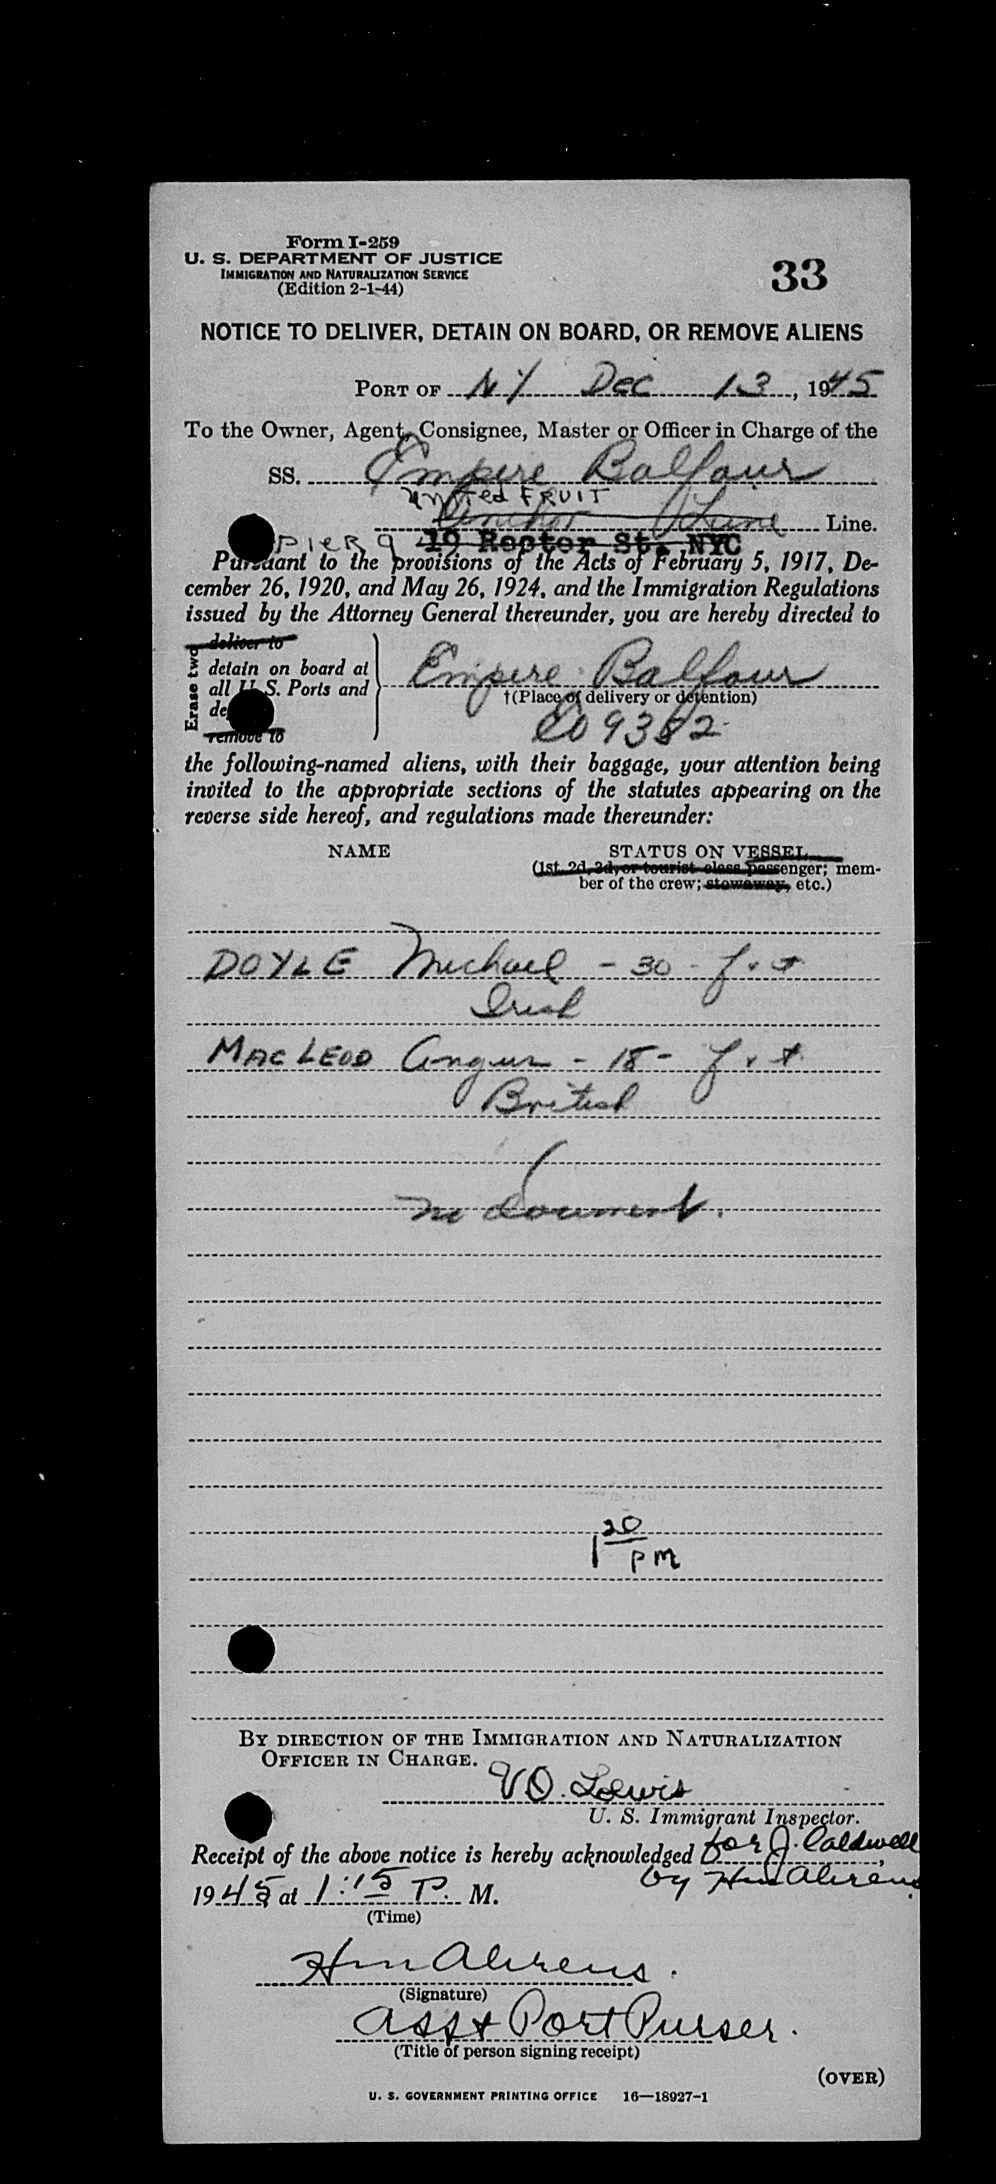 Form I-259
U. S. DEPARTMENT OF JUSTICE
IMMIGRATION AND NATURALIZATION SERVICE
(Edition 2-1-44)
33
NOTICE TO DELIVER, DETAIN ON BOARD, OR REMOVE ALIENS
PORT OF NY Dec 13, 1945
To the Owner, Agent, Consignee, Master or Officer in Charge of the
SS. Empire Balfour
United FRUIT
Anchor Line Line.
PIER 9 19 Rector St. NYC
Pursuant to the provisions of the Acts of February 5, 1917, De-
cember 26, 1920, and May 26, 1924, and the Immigration Regulations
issued by the Attorney General thereunder, you are hereby directed to
Erase two
deliver to
detain on board at
all U. S. Ports and
remove to
Empire Balfour
†(Place of delivery or detention)
the following-named aliens, with their baggage, your attention being
invited to the appropriate sections of the statutes appearing on the
reverse side hereof, and regulations made thereunder:
NAME
STATUS ON VESSEL
(1st, 2d, 3d, or tourist class passenger; mem-
ber of the crew; stowaway, etc.)
DOYLE Michael - 30 - f & t
Irish
MACLEOD Angus - 18 - f & t
British
no document.
1 20 pm
BY DIRECTION OF THE IMMIGRATION AND NATURALIZATION
OFFICER IN CHARGE.
V.O. Lewis
U. S. Immigrant Inspector.
Receipt of the above notice is hereby acknowledged for J. Caldwell
by Hm Ahrens
1945 at 1:15 P. M.
(Time)
Hm Ahrens.
(Signature)
Asst Port Purser.
(Title of person signing receipt)
(OVER)
U. S. GOVERNMENT PRINTING OFFICE 16—18927-1